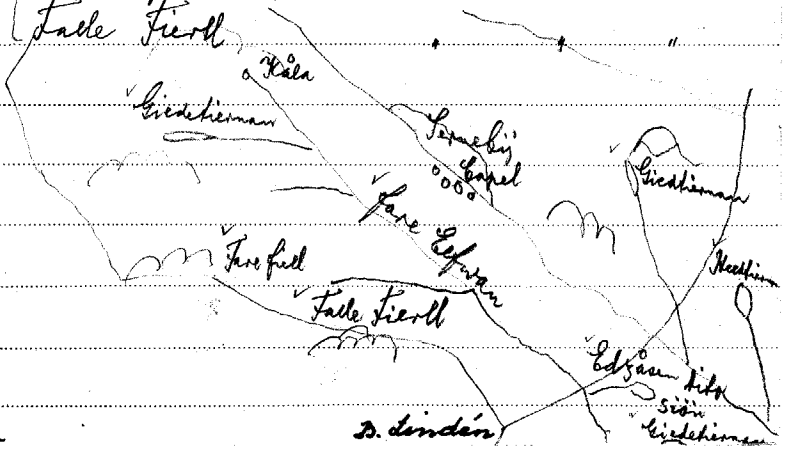 Falle Fierll
Kåla
Giedetiernan
Sernebÿ
Capel
Giedtiernan
Fare Elfwan
Farefiell
Needtiern
Falle Fierll
Edsåsen
dito
Siön
Giedetiernan
D. Lindén